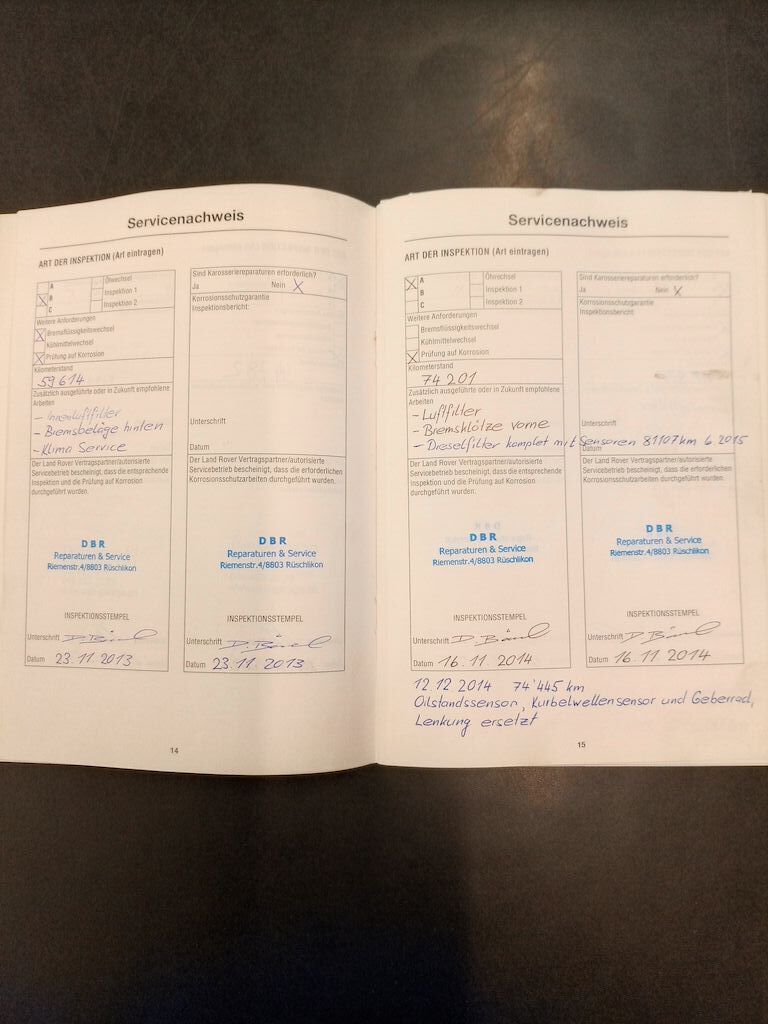 Servicenachweis
ART DER INSPEKTION (Art eintragen)
A
X B
C
Ölwechsel
Inspektion 1
Inspektion 2
Weitere Anforderungen
X Bremsflüssigkeitswechsel
Kühlmittelwechsel
X Prüfung auf Korrosion
Kilometerstand
59614
Zusätzlich ausgeführte oder in Zukunft empfohlene
Arbeiten
- Innenluftfilter
- Bremsbeläge hinten
- Klima Service
Der Land Rover Vertragspartner/autorisierte
Servicebetrieb bescheinigt, dass die entsprechende
Inspektion und die Prüfung auf Korrosion
durchgeführt wurden.
DBR
Reparaturen & Service
Riemenstr.4/8803 Rüschlikon
INSPEKTIONSSTEMPEL
Unterschrift
Datum 23.11.2013
Sind Karosseriereparaturen erforderlich?
Ja Nein X
Korrosionsschutzgarantie
Inspektionsbericht:
Unterschrift
Datum
Der Land Rover Vertragspartner/autorisierte
Servicebetrieb bescheinigt, dass die erforderlichen
Korrosionsschutzarbeiten durchgeführt wurden.
DBR
Reparaturen & Service
Riemenstr.4/8803 Rüschlikon
INSPEKTIONSSTEMPEL
Unterschrift
Datum 23.11.2013
14
Servicenachweis
ART DER INSPEKTION (Art eintragen)
X A
B
C
Ölwechsel
Inspektion 1
Inspektion 2
Weitere Anforderungen
Bremsflüssigkeitswechsel
Kühlmittelwechsel
X Prüfung auf Korrosion
Kilometerstand
74201
Zusätzlich ausgeführte oder in Zukunft empfohlene
Arbeiten
- Luftfilter
- Bremsklötze vorne
- Dieselfilter komplet mit Sensoren 81107km 6 2015
Der Land Rover Vertragspartner/autorisierte
Servicebetrieb bescheinigt, dass die entsprechende
Inspektion und die Prüfung auf Korrosion
durchgeführt wurden.
DBR
Reparaturen & Service
Riemenstr.4/8803 Rüschlikon
INSPEKTIONSSTEMPEL
Unterschrift
Datum 16.11.2014
Sind Karosseriereparaturen erforderlich?
Ja Nein X
Korrosionsschutzgarantie
Inspektionsbericht
Unterschrift
Datum
Der Land Rover Vertragspartner/autorisierte
Servicebetrieb bescheinigt, dass die erforderlichen
Korrosionsschutzarbeiten durchgeführt wurden.
DBR
Reparaturen & Service
Riemenstr.4/8803 Rüschlikon
INSPEKTIONSSTEMPEL
Unterschrift
Datum 16.11.2014
12.12.2014 74'445 km
Oilstandssensor, Kurbelwellensensor und Geberrad,
Lenkung ersetzt
15